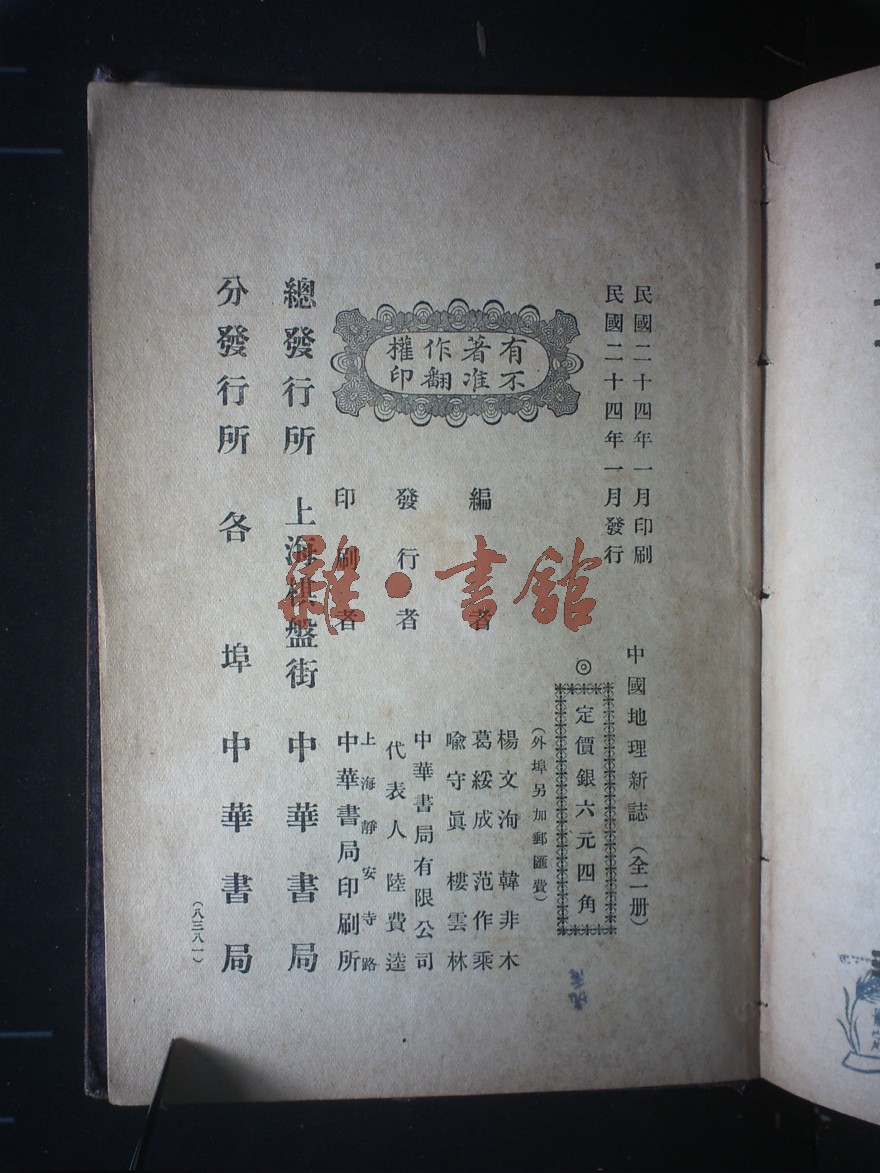 民國二十四年一月印刷
民國二十四年一月發行
中國地理新誌（全一册）
◎定價銀六元四角
（外埠另加郵匯費）
有著作權
不准翻印
編者
楊文洵 韓非木
葛綏成 范作乘
喻守眞 樓雲林
發行者
中華書局有限公司
代表人 陸費逵
印刷者
上海靜安寺路
中華書局印刷所
總發行所 上海棋盤街 中華書局
分發行所 各埠 中華書局
（八三八一）
雜·書館